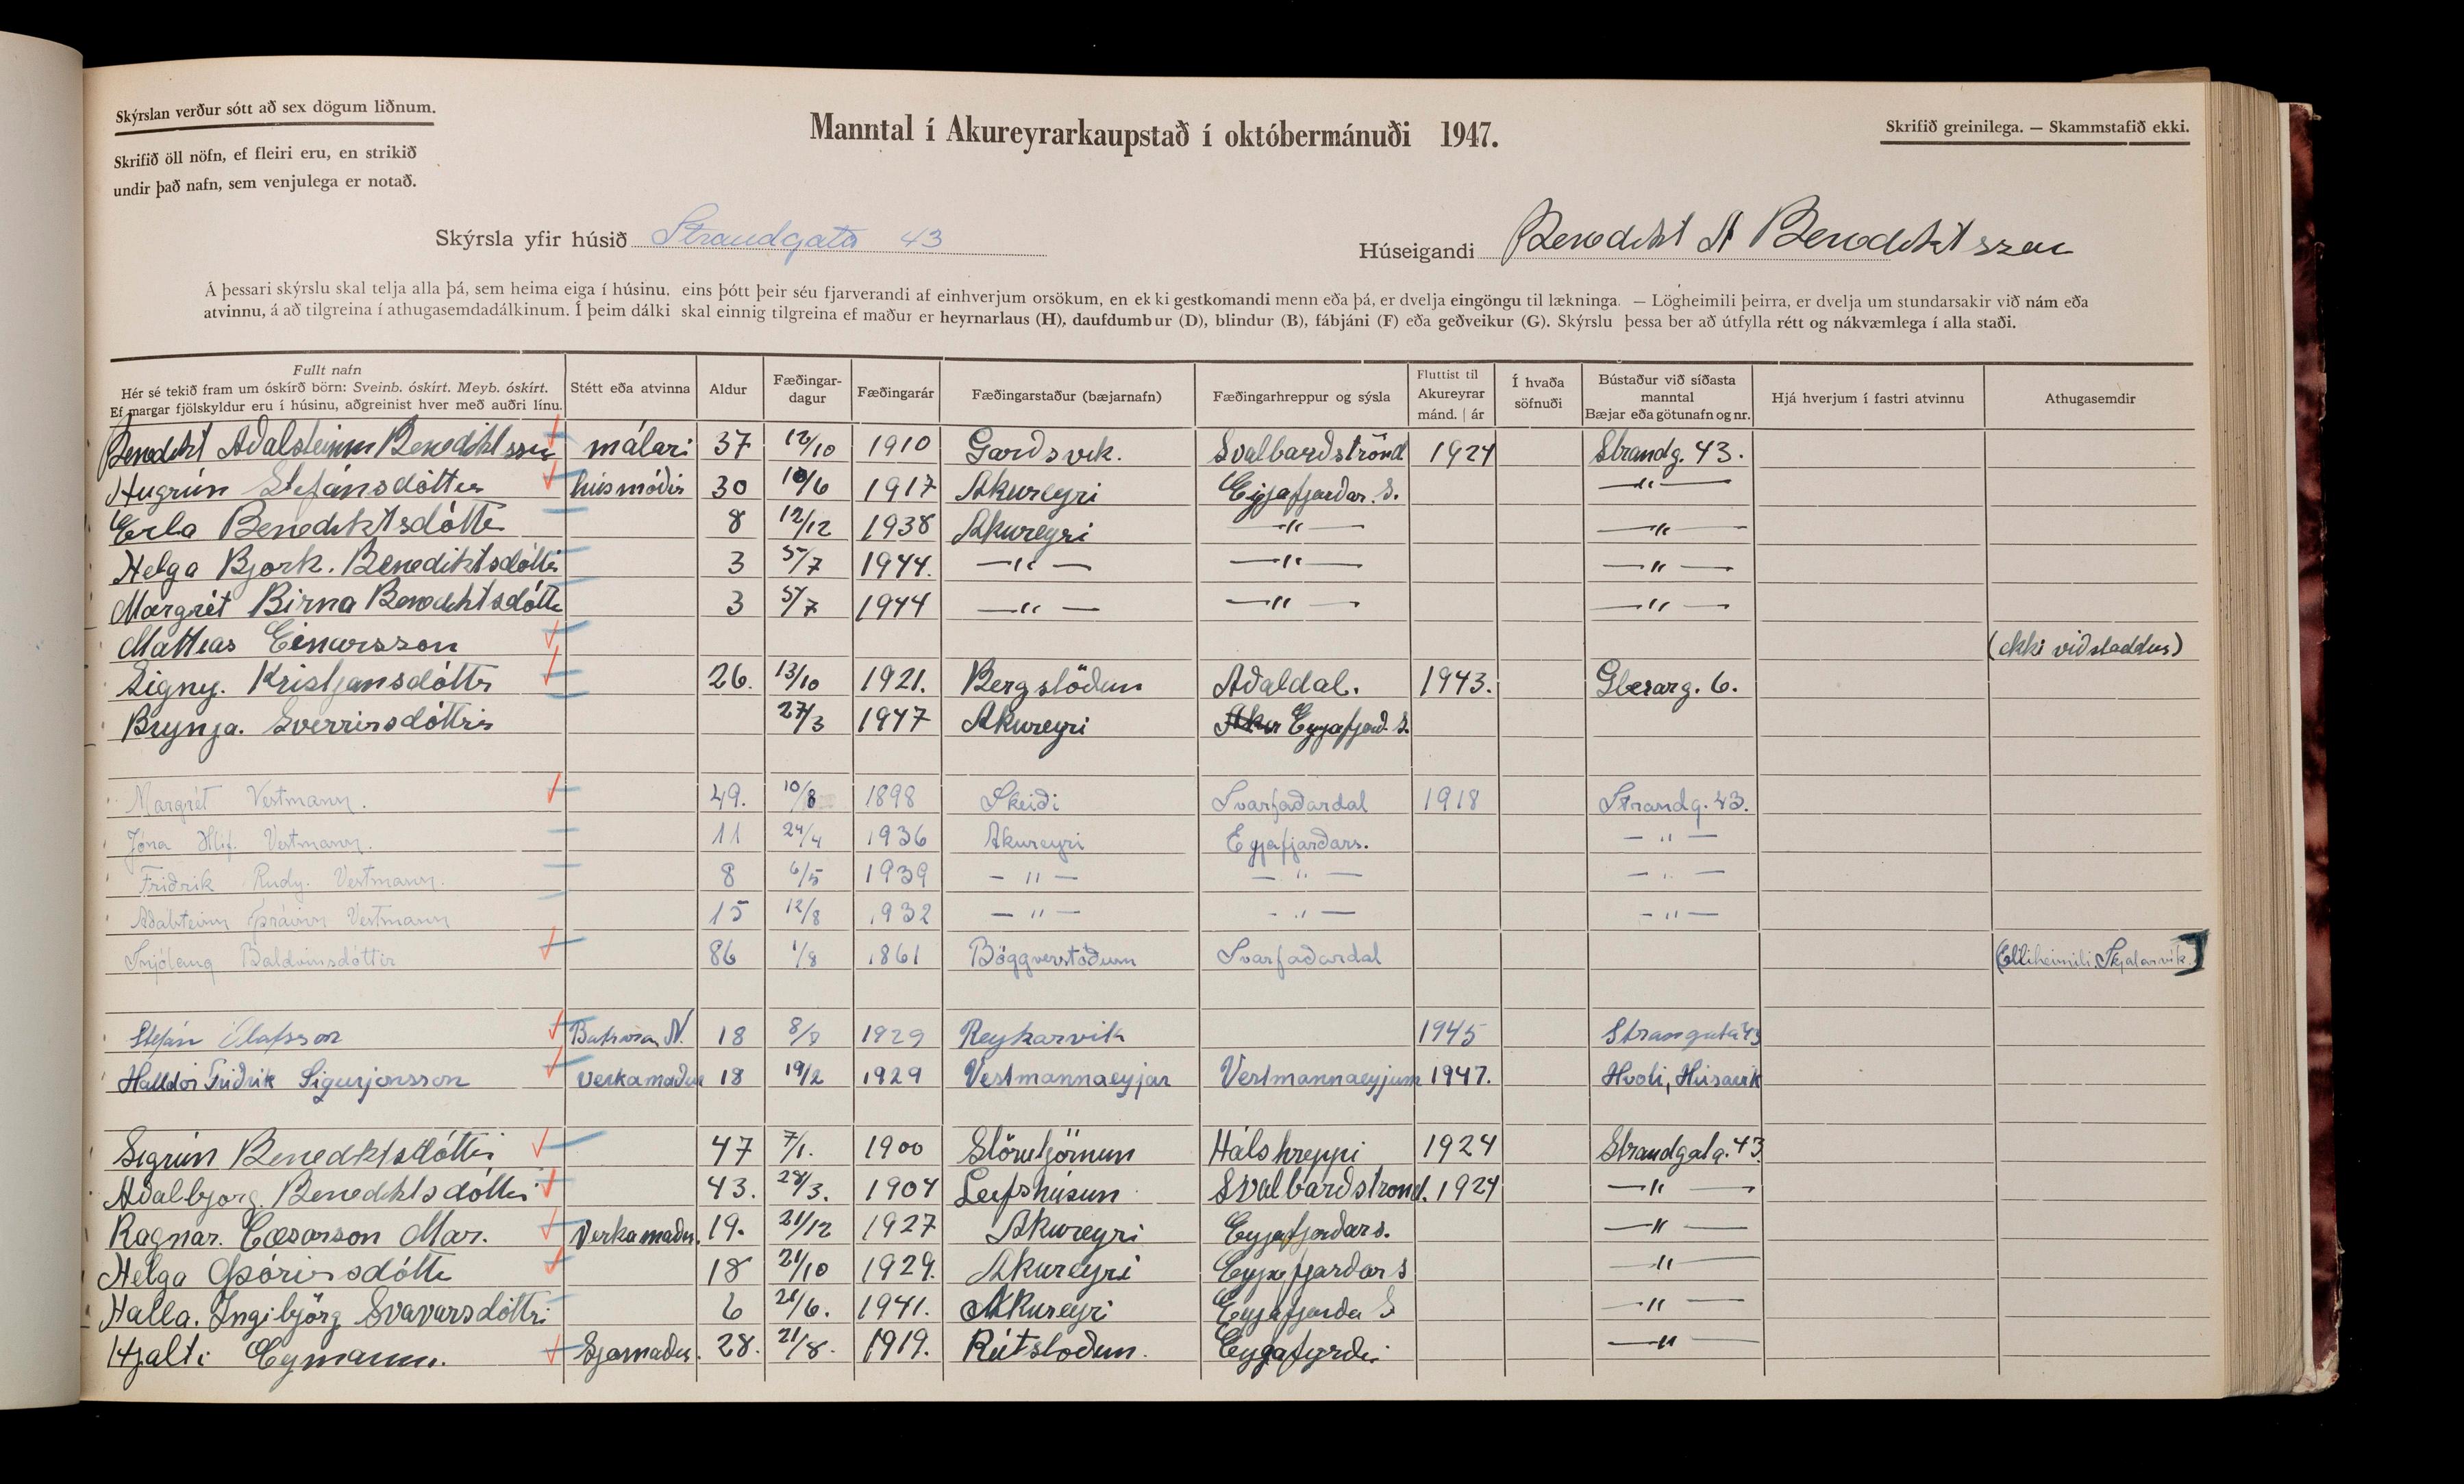 Skýrslan verður sótt að sex dögum liðnum.
Skrifið öll nöfn, ef fleiri eru, en strikið
undir það nafn, sem venjulega er notað.
Manntal í Akureyrarkaupstað í októbermánuði 1947.
Skrifið greinilega. — Skammstafið ekki.
Skýrsla yfir húsið Strandgata 43
Húseigandi Benedikt A Benediktsson
Á þessari skýrslu skal telja alla þá, sem heima eiga í húsinu, eins þótt þeir séu fjarverandi af einhverjum orsökum, en ekki gestkomandi menn eða þá, er dvelja eingöngu til lækninga. — Lögheimili þeirra, er dvelja um stundarsakir við nám eða
atvinnu, á að tilgreina í athugasemdadálkinum. Í þeim dálki skal einnig tilgreina ef maður er heyrnarlaus (H), daufdumbur (D), blindur (B), fábjáni (F) eða geðveikur (G). Skýrslu þessa ber að útfylla rétt og nákvæmlega í alla staði.
Fullt nafn
Hér sé tekið fram um óskírð börn: Sveinb. óskírt. Meyb. óskírt.
Ef margar fjölskyldur eru í húsinu, aðgreinist hver með auðri línu.
Stétt eða atvinna
Aldur
Fæðingar-
dagur
Fæðingarár
Fæðingarstaður (bæjarnafn)
Fæðingarhreppur og sýsla
Fluttist til
Akureyrar
mánd. | ár
Í hvaða
söfnuði
Bústaður við síðasta
manntal
Bæjar eða götunafn og nr.
Hjá hverjum í fastri atvinnu
Athugasemdir
Benedikt Aðalsteinn Benediktsson málari 37 12/10 1910 Garðsvík. Svalbarðströnd 1924 Strandg. 43.
Hugrún Stefánsdóttir húsmóðir 30 10/6 1917 Akureyri Eyjafjarðar.s. —"—
Erla Benediktsdótti 8 12/12 1938 Akureyri —"— —"—
Helga Bjork. Benediktsdóttir 3 5/7 1944. —"— —"— —"—
Margrét Birna Benediktsdótti 3 5/7 1944 —"— —"— —"—
Mattías Einarsson (ekki viðstaddur)
Signy. Kristjansdóttir 26. 13/10 1921. Bergstöðum Aðaldal. 1943. Glerarg. 6.
Brynja. Sverrisdóttir 27/3 1947 Akureyri Eyjafjarð.s.
Margrét Vestmann. 49. 10/8 1898 Skeiði Svarfaðardal 1918 Strandg. 43.
Jóna Hlíf. Vestmann. 11 24/4 1936 Akureyri Eyjafjarðars. —"—
Friðrik Rudy. Vestmann. 8 6/5 1939 —"— —"— —"—
Aðalsteinn Þráinn Vestmann 15 12/8 1932 —"— —"— —"—
Snjólaug Baldvinsdóttir 86 1/8 1861 Böggverstöðum Svarfaðardal (Elliheimili. Skjalarvík.)
Stefán Ólafsson 18 8/8 1929 Reykarvik 1945 Strangata 43
Halldór Friðrik Sigurjonsson verkamaður 18 19/2 1929 Vestmannaeyjar Vestmannaeyjum 1947. Hvoli, Húsavík
Sigrún Benediktsdóttir 47 7/1. 1900 Stórutjörnum Hálshreppi 1924 Strandgata. 43.
Aðalbjorg. Benediktsdóttir 43. 28/3. 1904 Leifshúsum Svalbarðstrond. 1924 —"—
Ragnar. Cæsarson Mar. Verkamaðu. 19. 21/12 1927 Akureyri Eyjafjarðars. —"—
Helga Þórirsdótti 18 21/10 1929. Akureyri Eyjafjarðars —"—
Halla. Ingibjörg Svavarsdóttri 6 21/6. 1941. Akureyri Eyjafjarða S —"—
Hjalti Eymann. Sjomaður. 28. 21/8. 1919. Rútsloðum. Eyjafyrði —"—